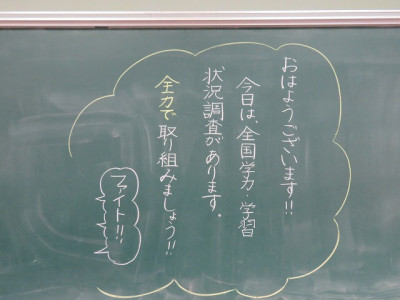 おはようございます!!
今日は、全国学力・学習
状況調査があります。
全力で取り組みましょう!!
ファイト!!